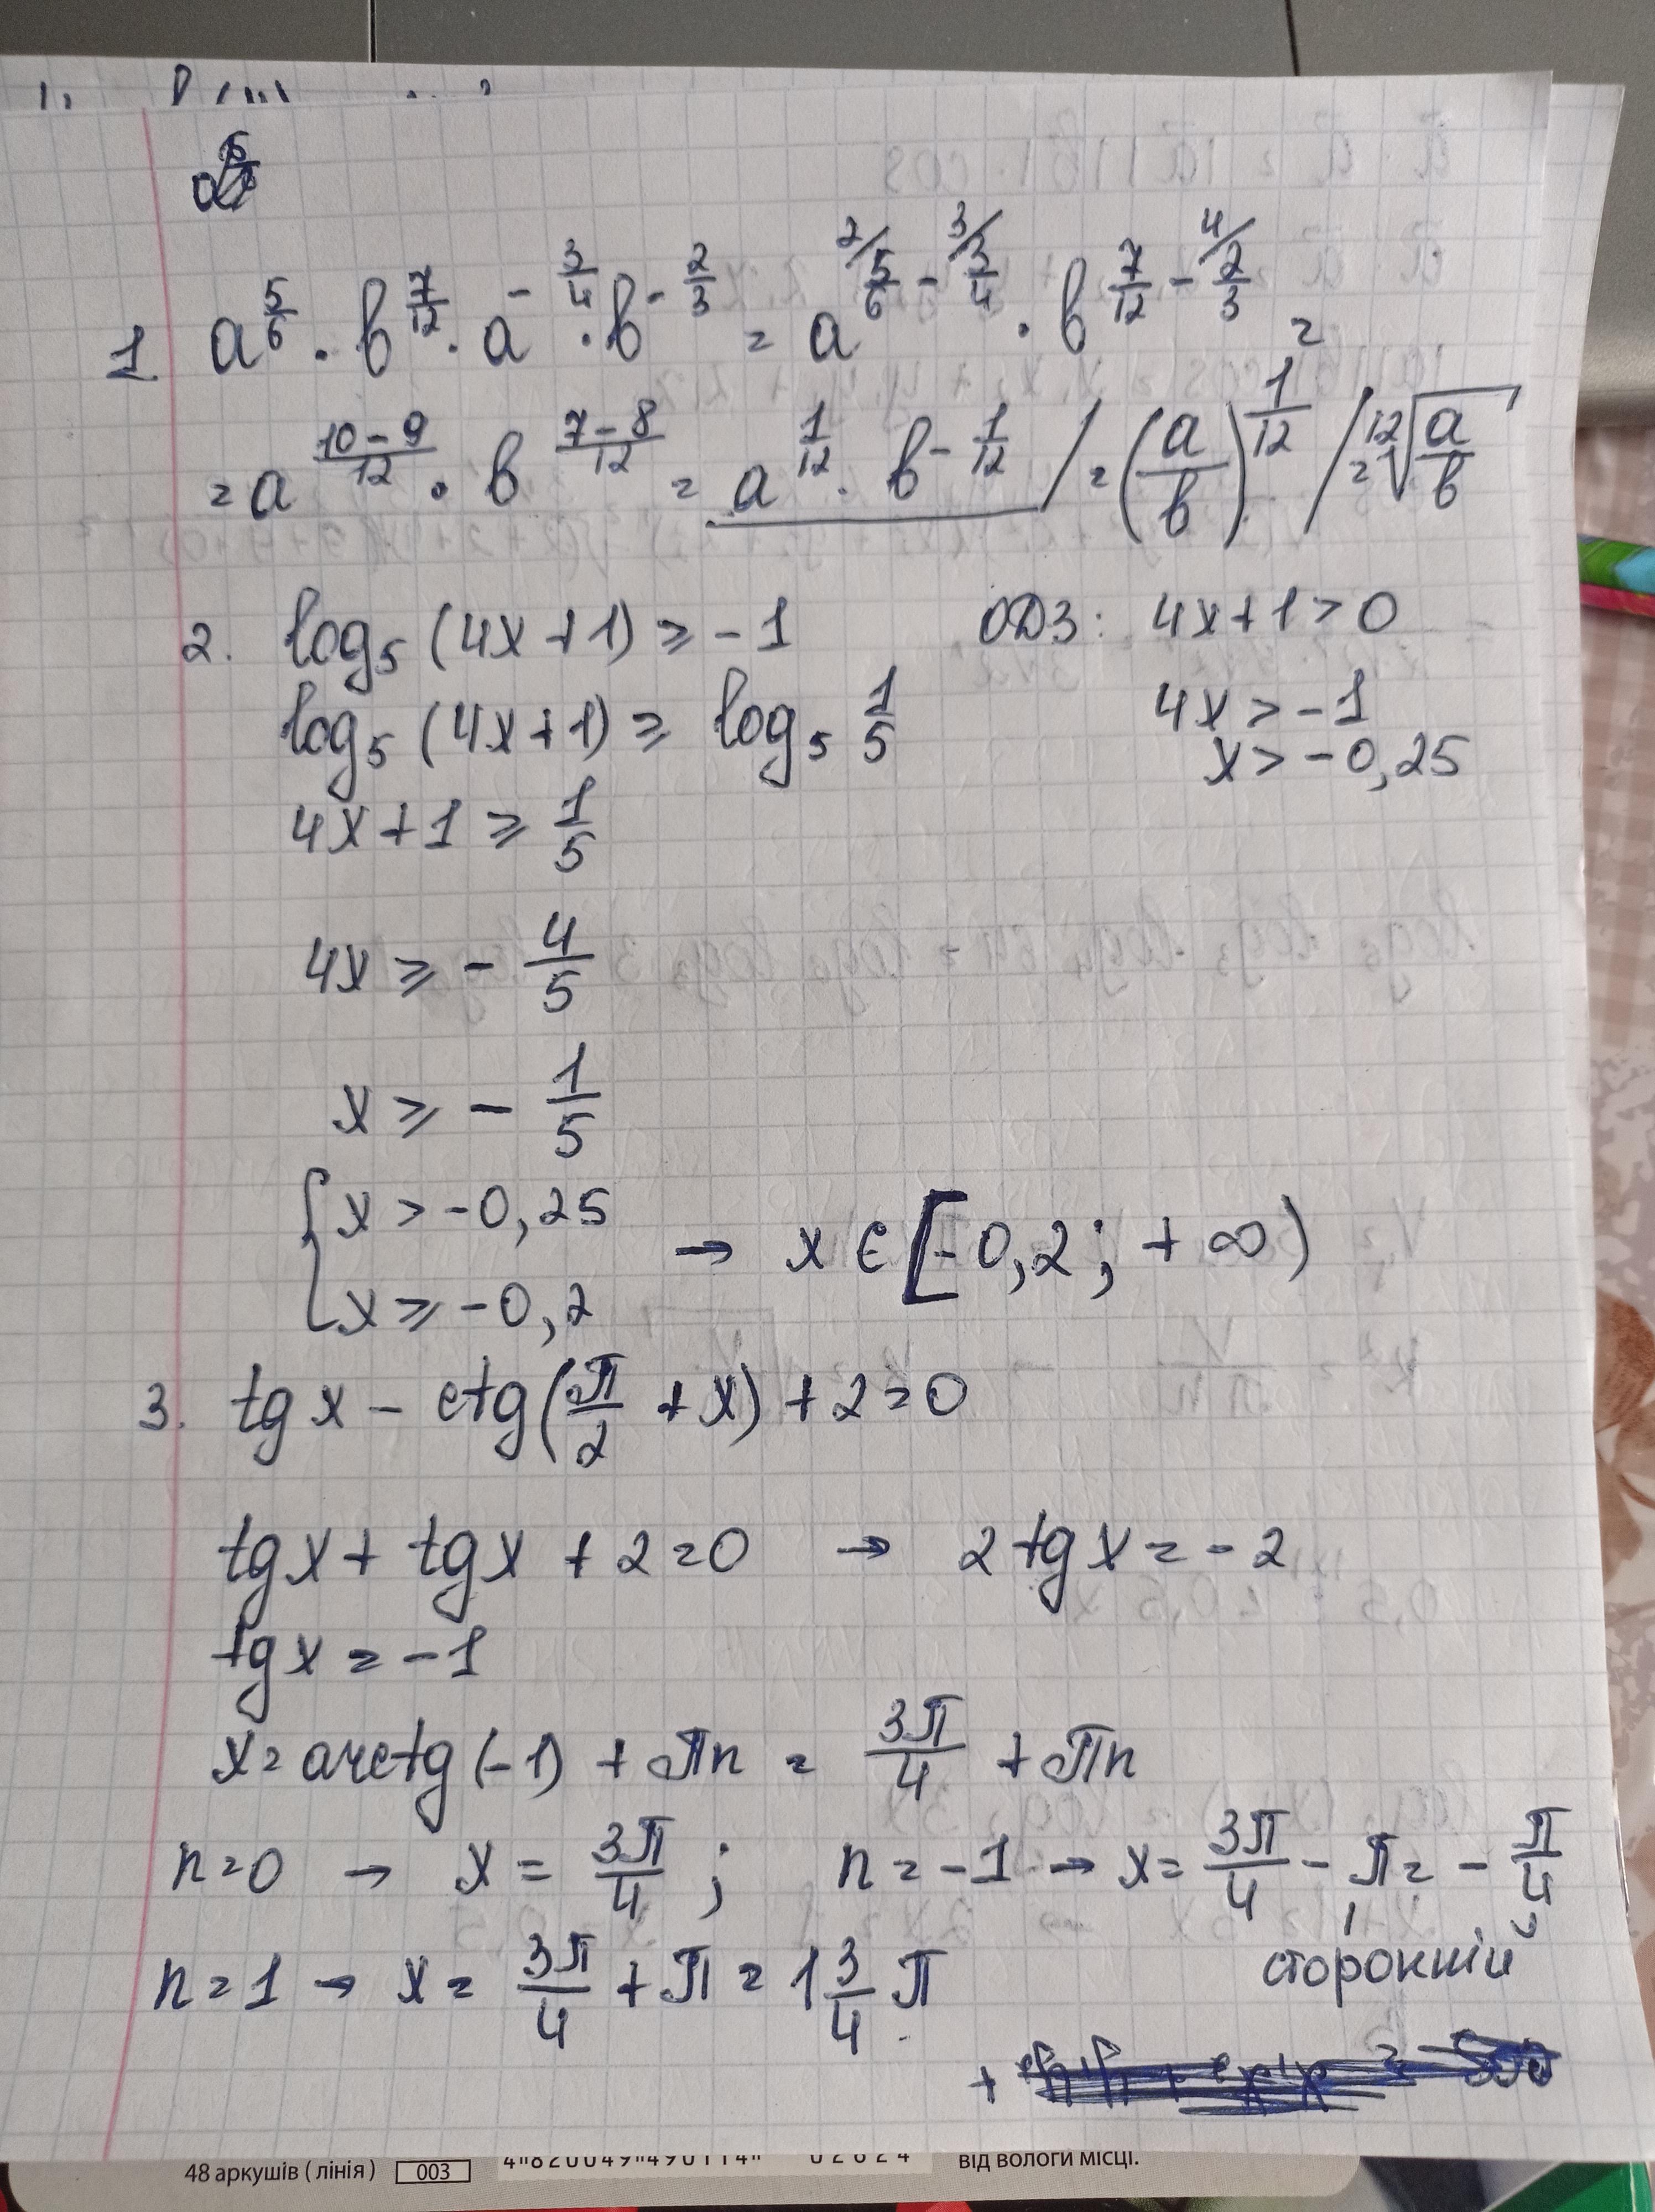 1. a^{5/6} · b^{7/12} · a^{-3/4} · b^{-2/3} = a^{5/6 - 3/4} · b^{7/12 - 2/3} =
= a^{(10-9)/12} · b^{(7-8)/12} = a^{1/12} · b^{-1/12} / = (a/b)^{1/12} / = ¹²√(a/b)
2. log₅(4x+1) ≥ -1 ОДЗ: 4x+1>0
log₅(4x+1) ≥ log₅ 1/5 4x > -1
x > -0,25
4x+1 ≥ 1/5
4x ≥ - 4/5
x ≥ - 1/5
{ x > -0,25
x ≥ -0,2 → x ∈ [-0,2; +∞)
3. tg x - ctg(π/2 + x) + 2 = 0
tg x + tg x + 2 = 0 → 2 tg x = -2
tg x = -1
x = arctg(-1) + πn = 3π/4 + πn
n=0 → x = 3π/4 ; n = -1 → x = 3π/4 - π = - π/4
сторонній
n=1 → x = 3π/4 + π = 1 3/4 π
48 аркушів (лінія) 003 ВІД ВОЛОГИ МІСЦІ.